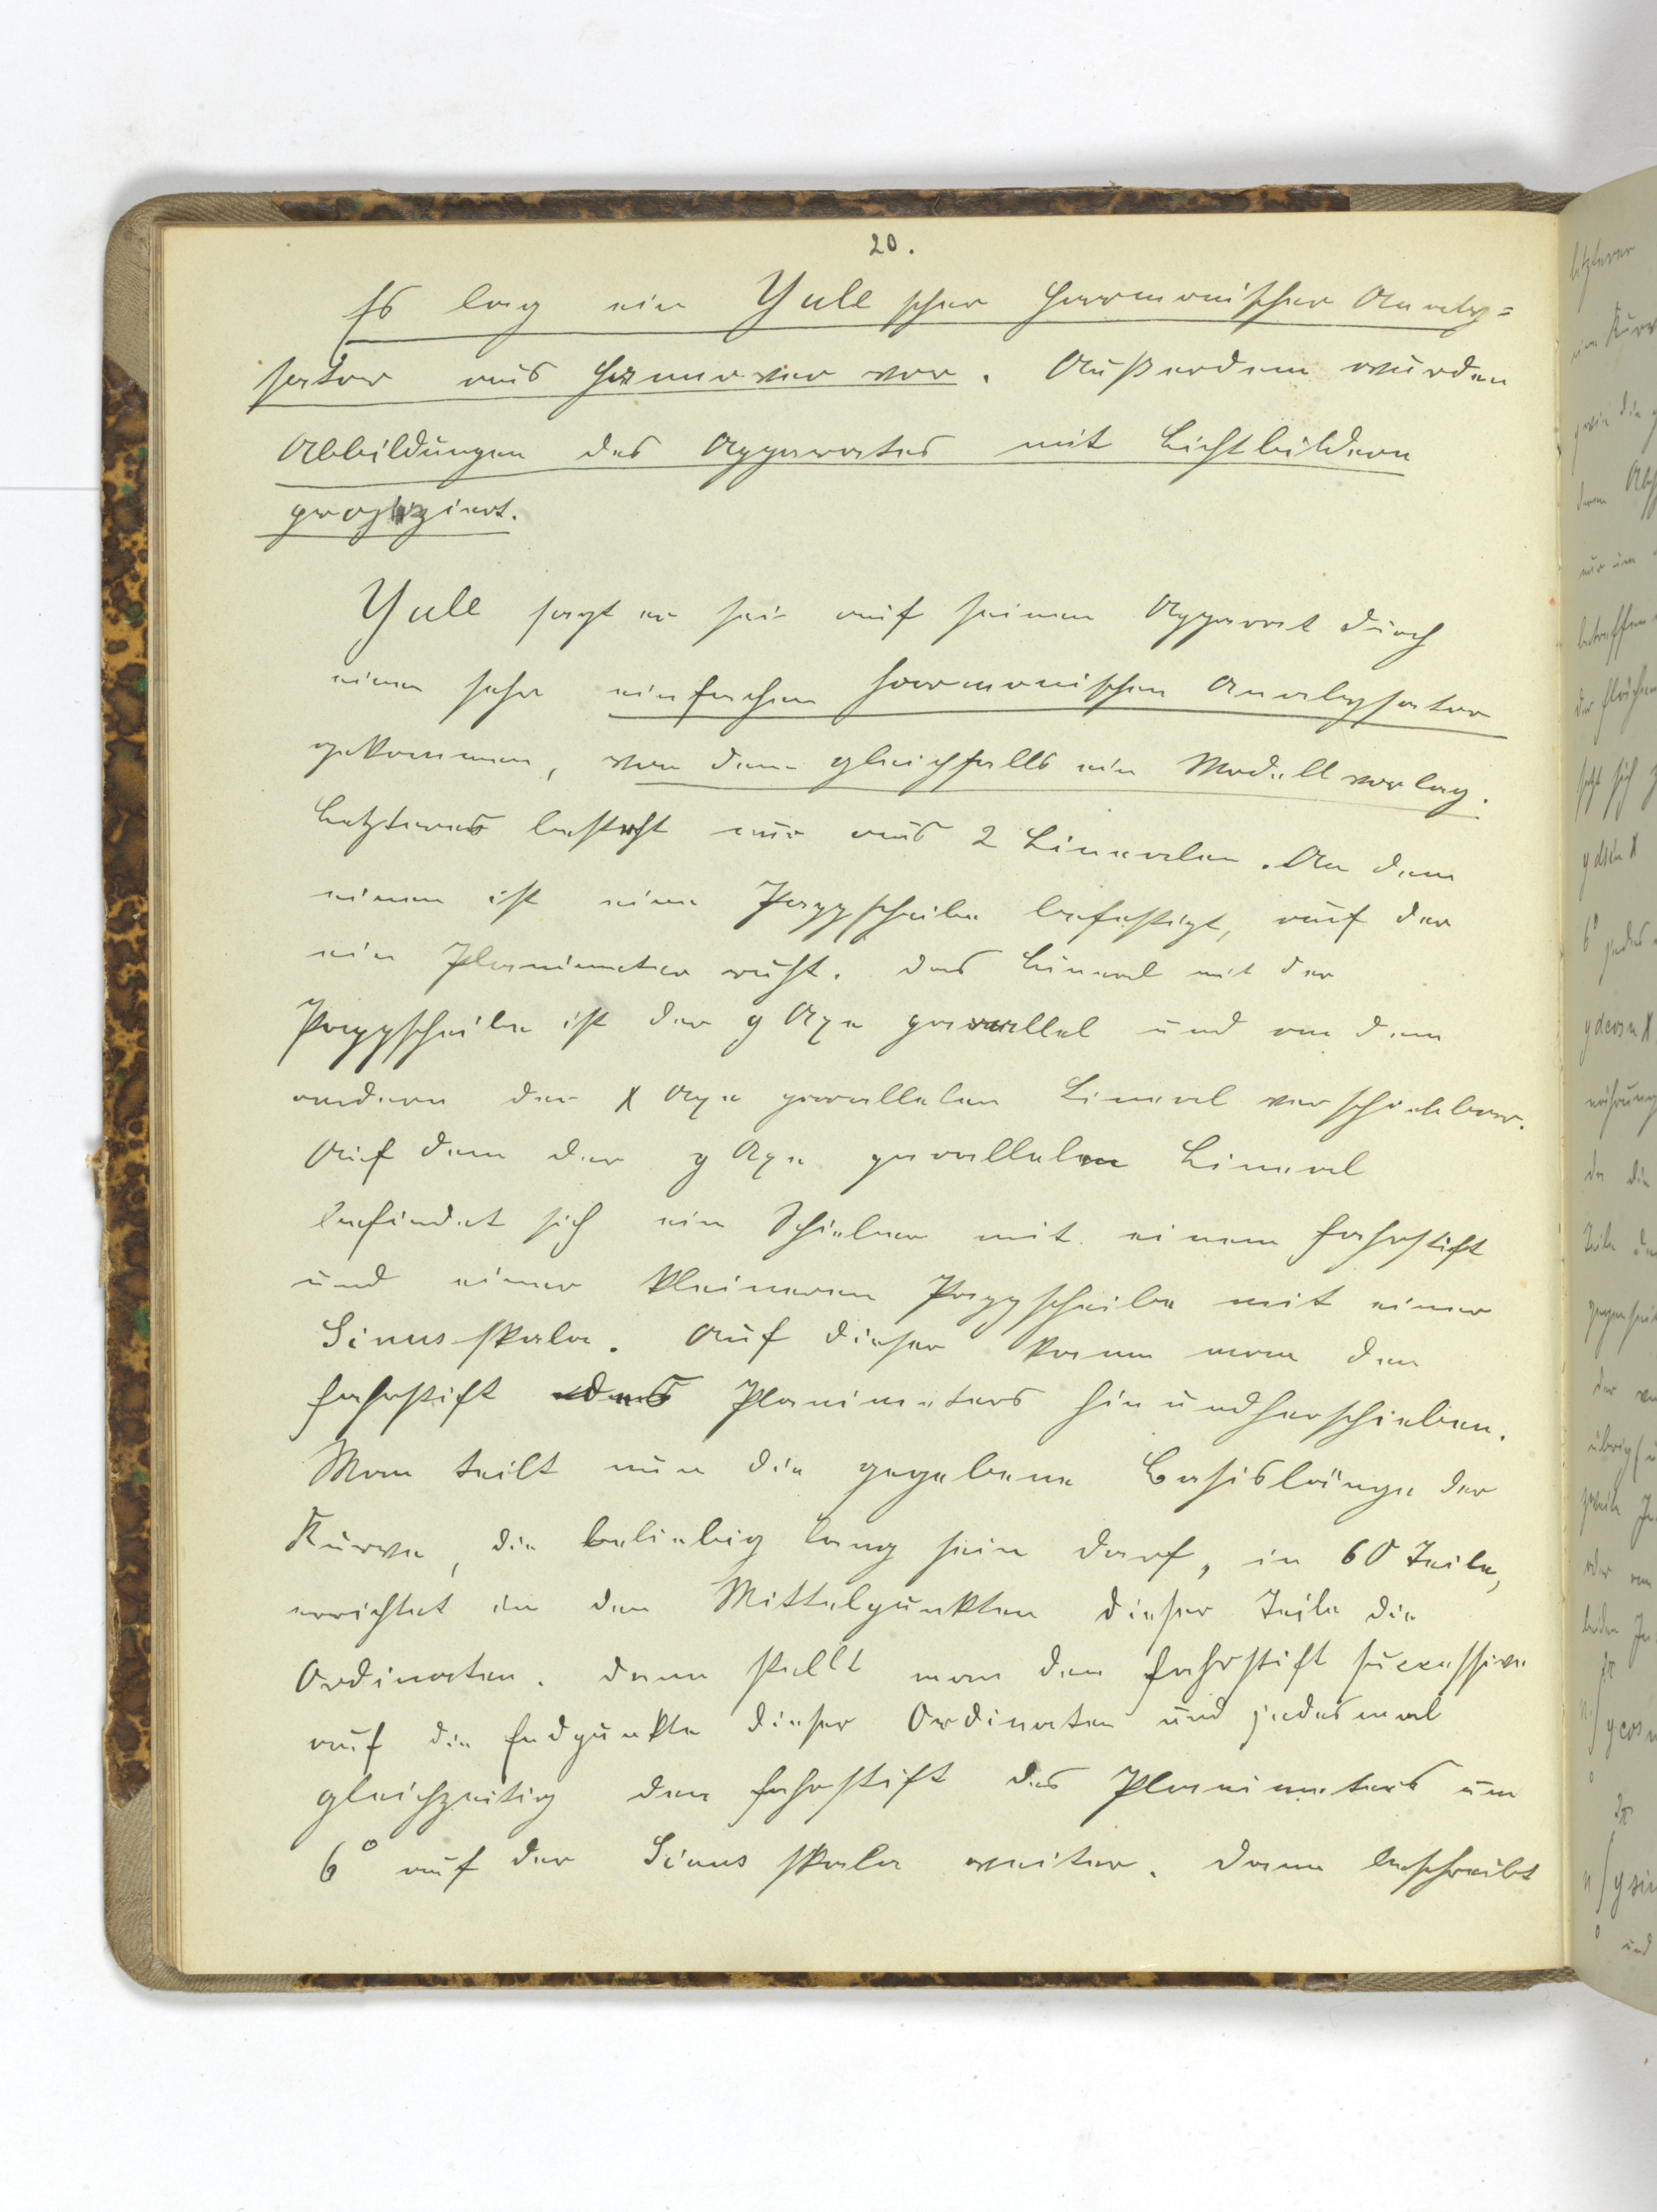 20.
Es lag ein Yule scher harmonischer Analy=
sator aus Hannover vor. Außerdem wurden
Abbildungen des Apparates mit Lichtbildern
projiziert.
Yule sagt er sei auf seinen Apparat durch
einen sehr einfachen harmonischen Analysator
gekommen, von dem gleichfalls ein Modell vorlag.
Letzteres besteht nur aus 2 Linealen. An dem
einen ist eine Pappscheibe befestigt, auf der
ein Planimeter ruht. Das Lineal mit der
Pappscheibe ist der y Axe parallel und an dem
andern der x Axe parallelen Lineal verschiebbar.
Auf dem der y Axe parallelen Lineal
befindet sich ein Schieber mit einem Fahrstift
und einer kleineren Pappscheibe mit einer
Sinusskala. Auf dieser kann man den
Fahrstift des Planimeters hin und herschieben.
Man teilt nun die gegebene Basislänge der
Kurve, die beliebig lang sein darf, in 60 Teile,
errichtet in den Mittelpunkten dieser Teile die
Ordinaten. Dann stellt man den Fahrstift successive
auf die Endpunkte dieser Ordinaten und jedesmal
gleichzeitig den Fahrstift des Planimeters um
6° auf der Sinus skala weiter. Dann beschreibt
letzterer
eine Kurv
wie die
deren
nur um
betreffen
der Flächen
setzt sich
y dsin x
6° jedes
y dcosn x
nährung
da die
Teile
gegensei
der
übrig
zweite
oder
beiden
2π
n ∫ y cos n
0
2π
n ∫ y sin
0
und